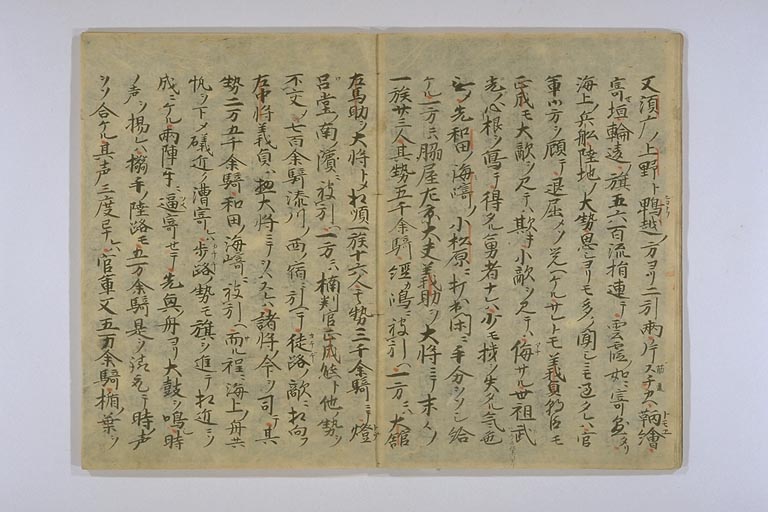 又須广ノ上野ト鴨越ノ方ヨリ二引両カ斤スチカヘ鞆繪
寄垣輪違ノ旗五六百流指連テ雲霞如ニ寄懸タリ
海上ノ兵舩陸地ノ大勢思シヨリモ多ノ聞シニモ過タレハ官
軍ハ方ヲ顧テ退屈メソ覚ヘケルサレトモ義貞朝臣モ
正成モ大敵ヲ見テハ欺キ小敵ヲ見テハ侮サル世祖武
光ノ心根ヲ寫テ得タル勇者ナレハ少モ機ヲ失タル氣色
ナシ先和田ノ海﨑ノ小松原ニ打出閑ニ手分ヲソシ給
ケル一方ニハ脇屋左京大夫義助ヲ大將ニテ末々ノ
一族廿三人其勢五千余騎經カ嶋ニ被引ヘ一方ニハ大舘
左馬助ヲ大將トメ相順一族十六人其勢三千余騎ニテ燈
呂堂ノ南濱ニ被引ヘ一方ニハ楠判官正成態ト他ノ勢ヲ
不交ノ七百余騎湊川ノ西ノ宿ニ引ヘテ徒路ノ敵ニ相向フ
左中將義貞ハ惣大將ニテヲハスレハ諸將ノ命ヲ司テ其
勢二万五千余騎和田ノ海﨑ニ被引ヘ而ル程ニ海上ノ舟共
帆ヲ下メ礒近ク漕寄レハ歩路ノ勢モ旗ヲ進テ相近ニソ
成ニケル両陣牙ニ逼寄セテ先奥ノ舟ヨリ大鼓ヲ鳴時
ノ声ヲ揚レハ搦手陸路モ五万余騎是ヲ請取テ時声
ヲソ合ケル其声三度早レハ官軍又五万余騎楯ノ葉ヲ